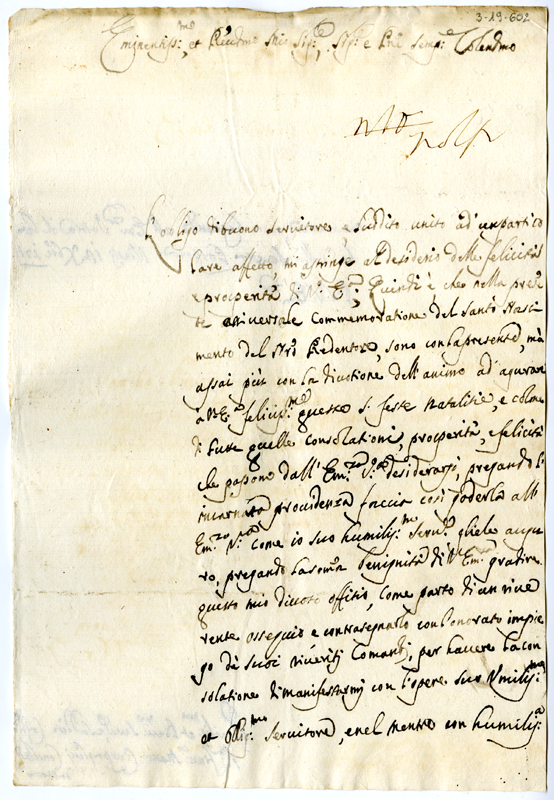 3-19-602
Eminentiss:mo et Rev:mo Sig:re, Sig:re e Pne Semp:re Colendmo
L'obligo di buono servitore e suddito unito ad' un partico
lare affetto, mi astringe al desiderio delle felicità
e prosperità di V:a E:a, Quindi è che nella prese
te universale commemoratione del Santo Nasci
mento del Nrõ Redentore, sono con la presente, mà
assai più con la divotione dell'animo ad' agurare
à V E:a feliciss:me queste S: feste Natalitie, e colme
di tutte quelle consolationi, prosperità, e felicità
che possono dall' Em:za V:a desiderarsi, pregando l'
incarnata providenza faccia così goderla all'
Em:za V:a come io suo humilis:mo serv:re gliele augu
ro, pregando la somã benignità di V Em:za gradire
questo mio divoto offitio, come parto di un rive
rente ossequio e contrasegnarlo con l'onorato impie
go di suoi riveriti Comandi, per havere la con
solatione di manifestarmi con l'opere suo Vmilis:mo
et Oblig:mo servitore, e nel mentre con humilis:a